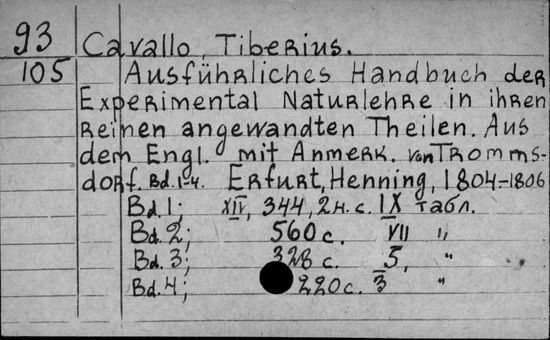 93 Cavallo, Tiberius.
105 Ausführliches Handbuch der
Experimental Naturlehre in ihren
reinen angewandten Theilen. Aus
dem Engl. mit Anmerk. von Tromms-
dorf. Bd. 1-4. Erfurt, Henning, 1804-1806
Bd. 1; XIV, 344, 2 н. с. IX табл.
Bd. 2; 560 с. VII "
Bd. 3; 328 с. 5, "
Bd. 4; 220 с. 3 "